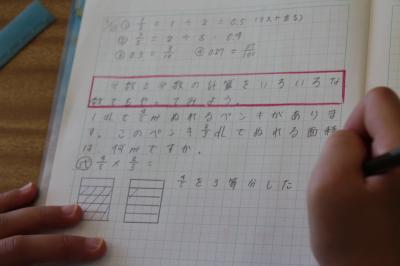 ① = 1 ÷ 2 = 0.5 (
② = 2 ÷ 5 = 0.4
③ 0.3 = 3/10 ④ 0.27 = 27/100
分数と分数の計算をいろいろな
数でもやってみよう。
1dLで m²ぬれるペンキがありま
す。このペンキ dLでぬれる面積
は、何m²ですか。
式 4/5 × 2/3 =
4/5を3等分した